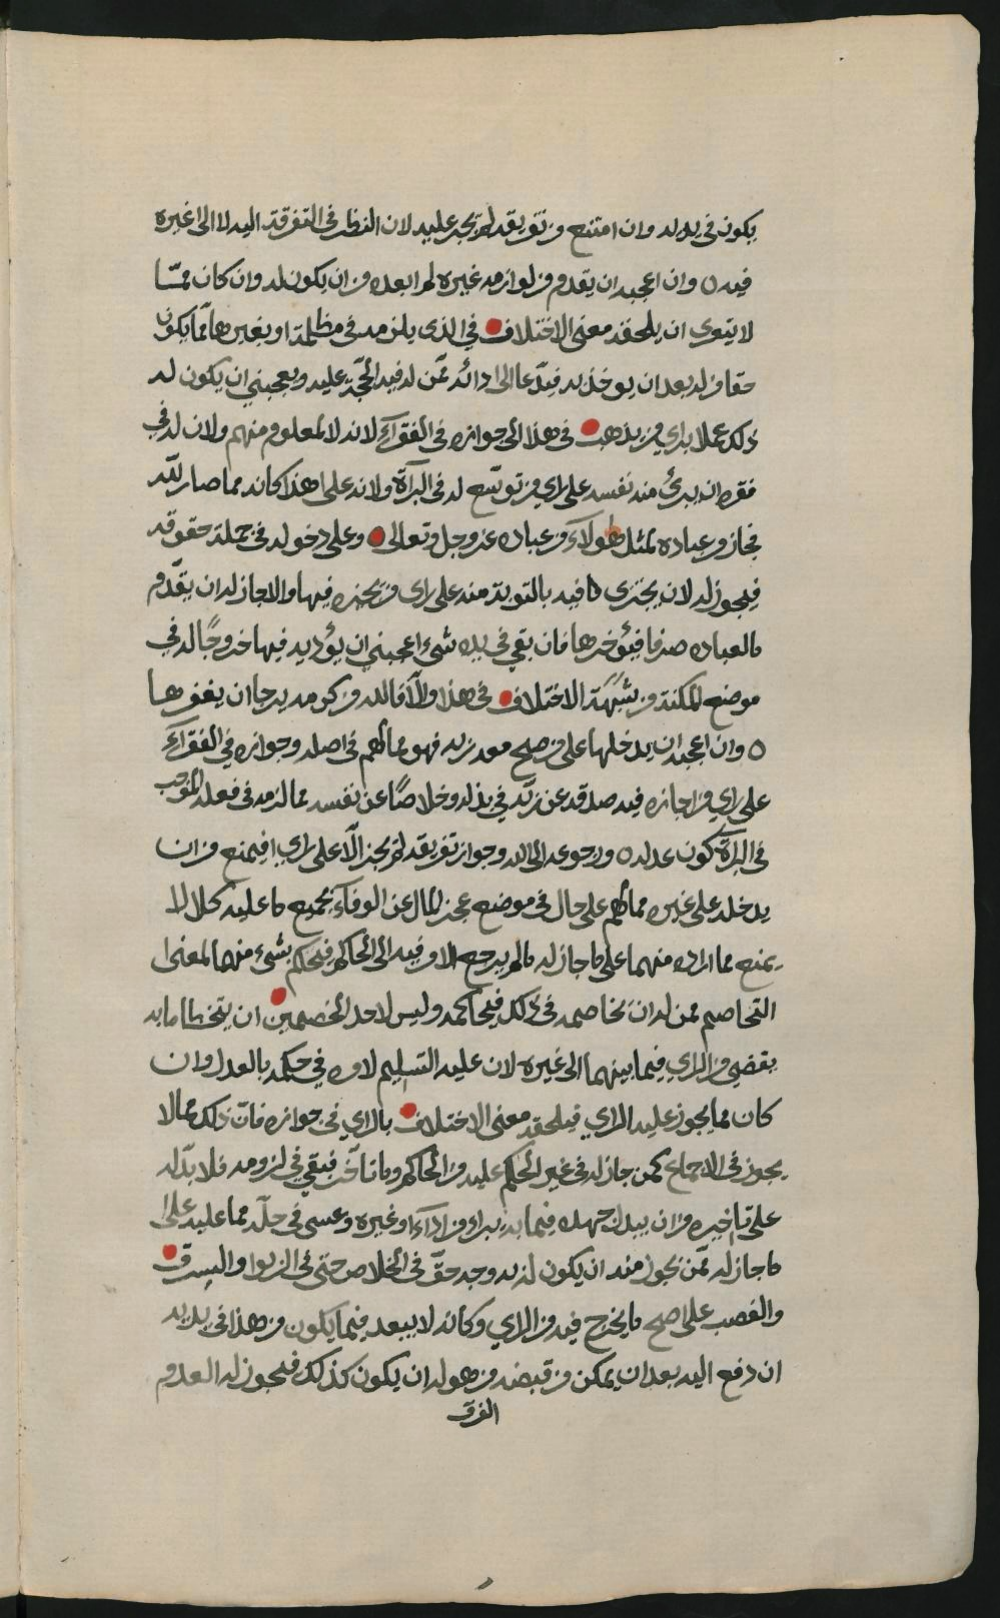 يكون في يده له وان امتنع من تفريقه لم يجبر عليه لان النظر في التفرقة اليه لا الى غيره
فيه ٥ وان اعجبه ان يقدم من لوازمه غيره لم ابعده من ان يكون له وان كان ممّا
لا يتعرى ان يلحقه معنى الاختلاف في الذي يلزمه في مظلمة او بغيرها ممّا يكون
حقا من له بعد ان يوخذ به فيدّعا الى ادائه ممّن له فيه الحجّة عليه ويعجبني ان يكون له
ذلك عملا براي من يذهب في هذا الى جوازه في الفقرآء لانه لا لمعلوم منهم ولان له في
فقره ان يبرئ منه نفسه على راي من توسّع له في البرآة ولانه على هذا كانه مما صار للّه
فجاز من عباده لمثل هولآء من عباده عز وجل وتعالى وعلى دخوله في جملة حقوقه
فيجوز له لان يجتزى ما فيه بالتوبة منه على راي من يجيزه فيها والا جاز له ان يقدّم
ما لعباده صرفا فيؤخرها فان بقي في يده شيء اعجبني ان يؤديه فيها خروجًا له في
موضع المكنة من شبهة الاختلاف في هذا والّا فالله من كرمه يرجا ان يغفرها
٥ وان اعجبه ان يدخلها على من صح معه نزيه فهو مما لهم في اصله وجوازه في الفقرآء
على راي من اجازه فيه صدقة عن ربّه في بذله وخلاصًا عن نفسه مما لزمه في فعله الموجب
في البرآة كون عدله ٥ ورجوعه الى الله وجواز تفريقه لم يجز الّا على راي افيمنع من ان
يدخله على غيره مما لهم على حال في موضع عجز المال عن الوفآء بجميع ما عليه كلا لا
يمنع مما اراده منهما على ما جاز له ما لم يرجع الامر فيه الى الحاكم فيحكم بشيء منهما لمعنى
التخاصم ممن له ان يخاصمه في ذلك فيحاكمه وليس لاحد الخصمين ان يتخطا ما به
يقضي من الراي فيما بينهما الى غيره لان عليه التسليم لامره في حكمه بالعدل وان
كان مما يجوز عليه الراي فيلحقه معنى الاختلاف بالراي في جوازه فانّ ذلك مما لا
يجوز في الاجماع كمن جاز له في غير الحكم عليه من الحاكم وما تاخّر فبقي في لزومه فلا بدّ له
على تاخيره من ان يبذل جهده فيما به يبراء من ادآء او غيره وعسى في حلّه مما عليه على
ما جاز له ممّن يجوز منه ان يكون له به وجه حقّ في الخلاص حتى في الربوا والسرق
والغصب على اصح ما يخرج فيه من الراي وكانه لا يبعد فيما يكون من هذا في يد به
ان دفع اليه بعد ان يمكن من قبضه من هو له ان يكون كذلك فيجوز له العدم
الفرق